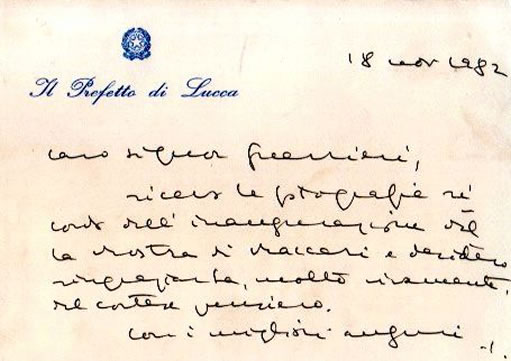 Il Prefetto di Lucca
18 nov 1982
caro signor Guerrieri,
ricevo le fotografie ri
cordo dell'inaugurazione del
la mostra di Maccari e desidero
ringraziarLa, molto vivamente,
del cortese pensiero.
con i migliori auguri